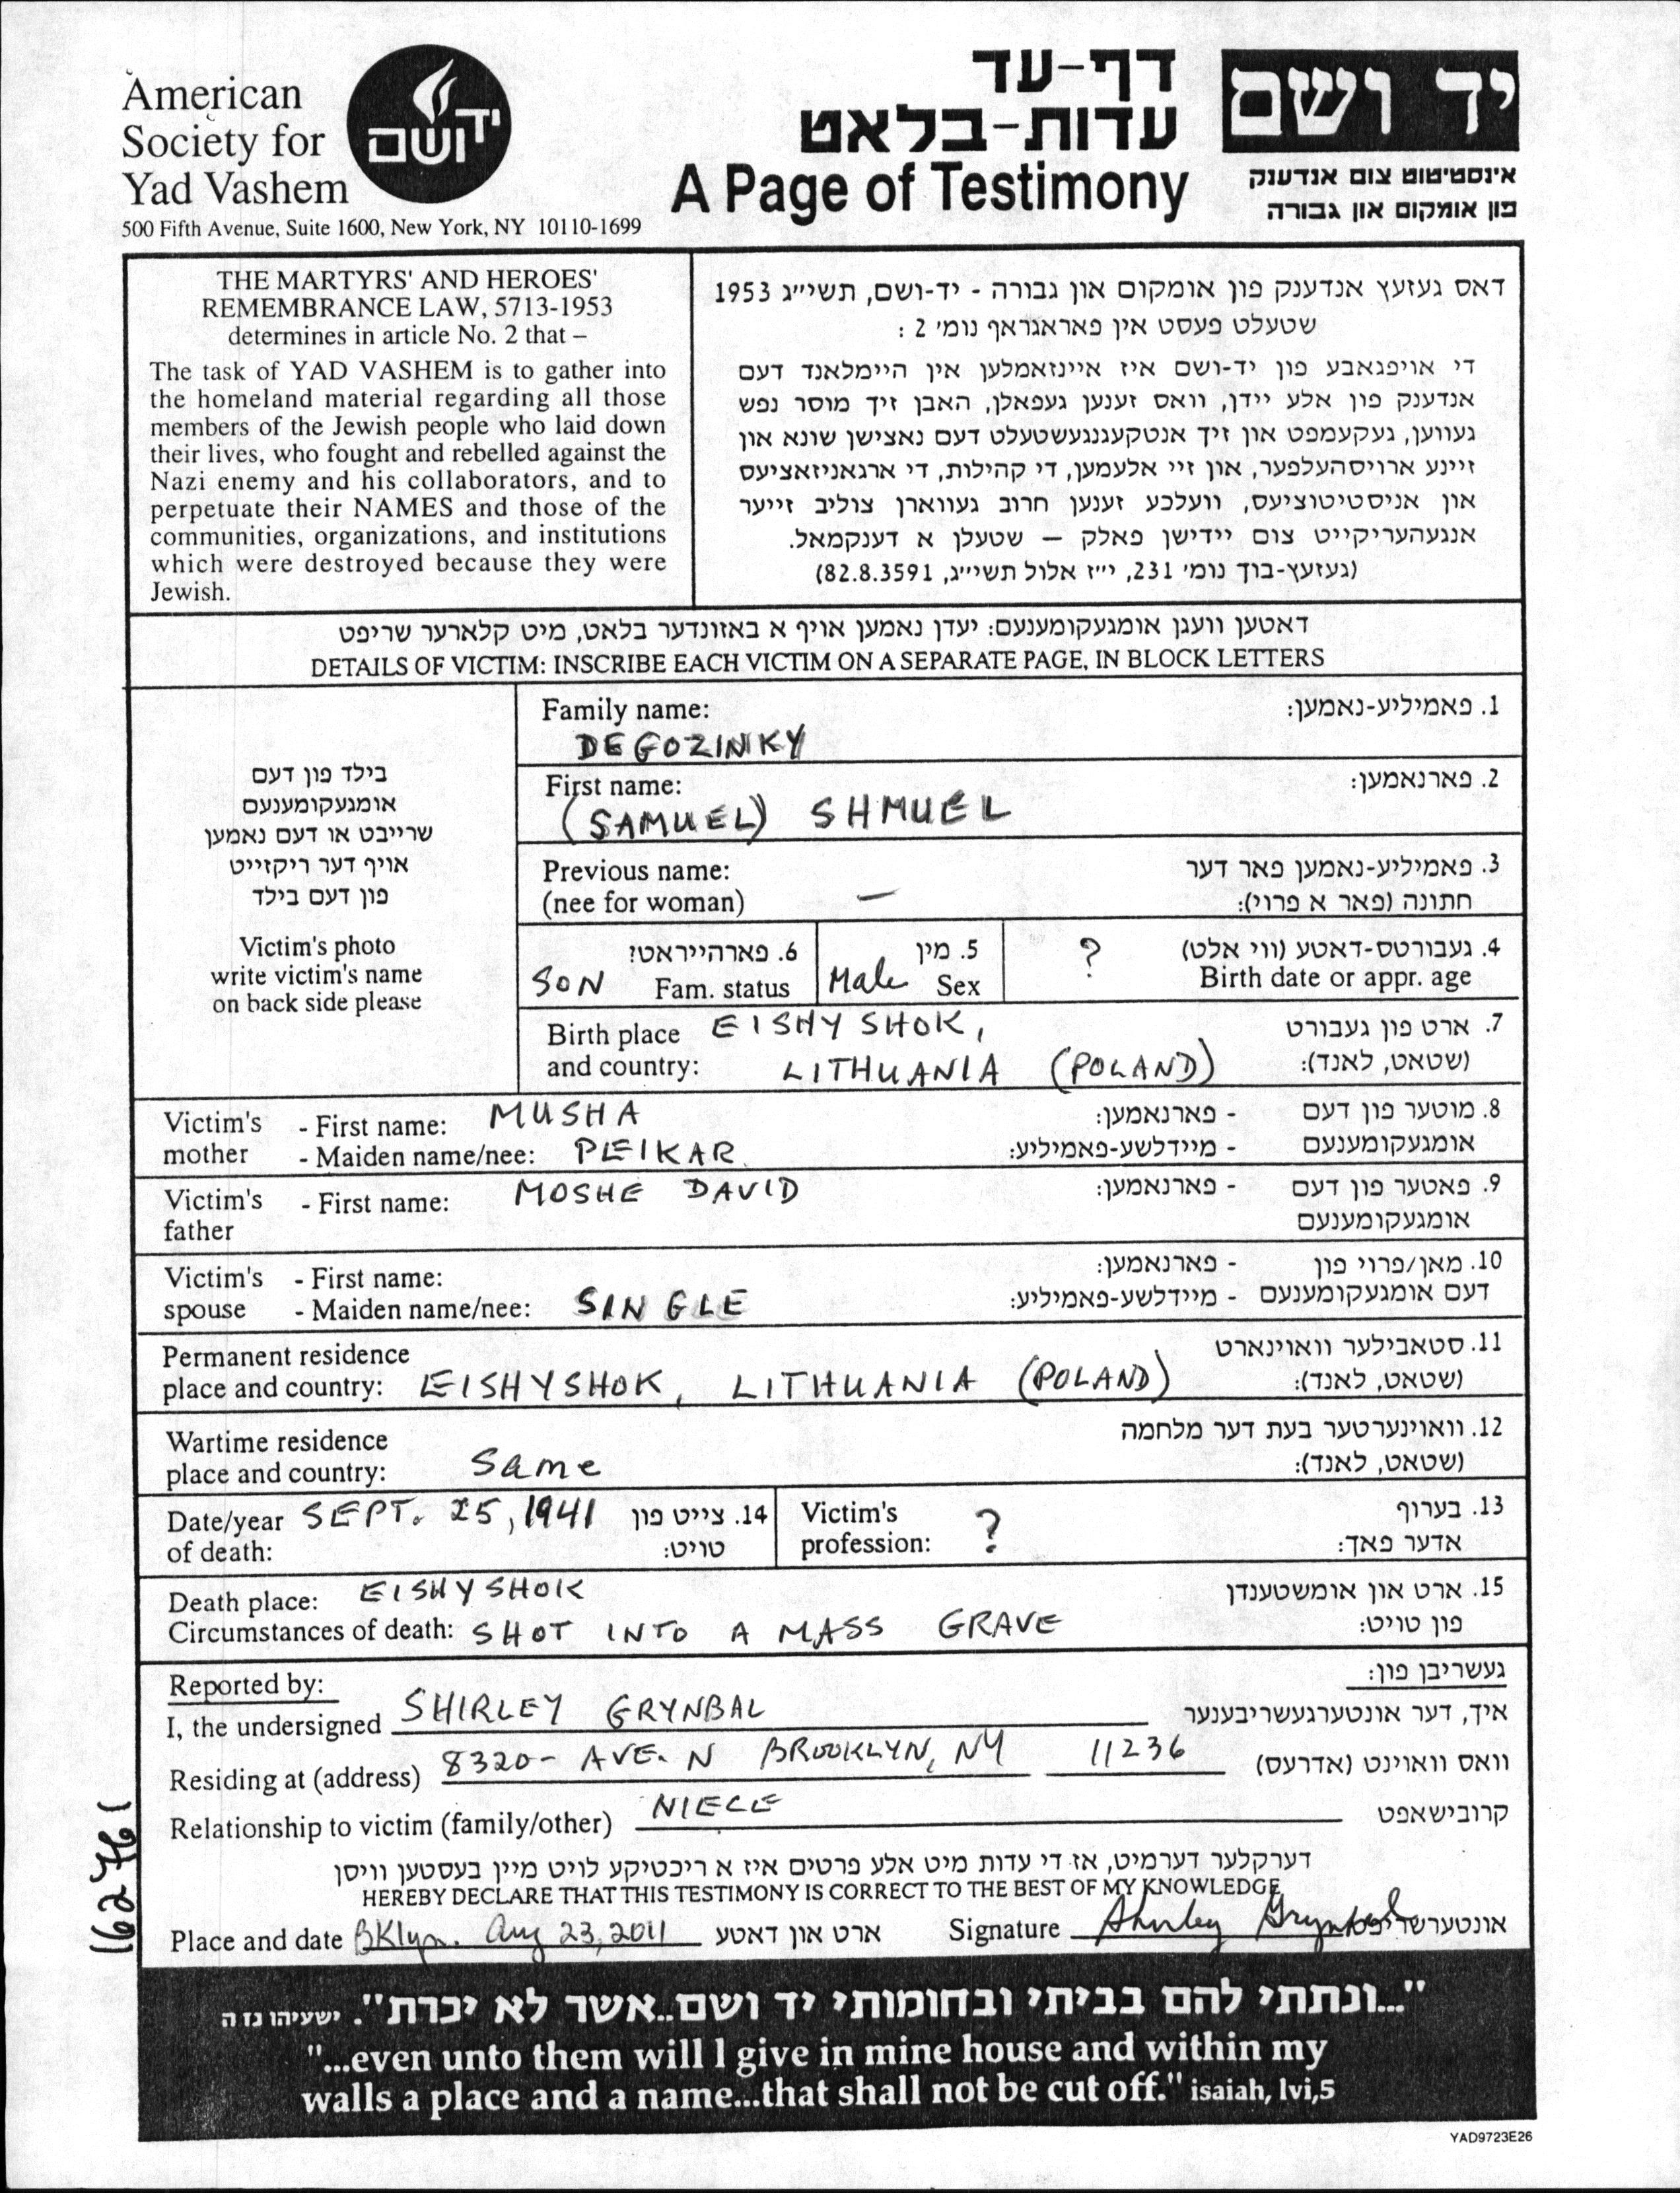 American
Society for
Yad Vashem
יד ושם
500 Fifth Avenue, Suite 1600, New York, NY 10110-1699
דף-עד
עדות-בלאט
A Page of Testimony
יד ושם
אינסטיטוט צום אנדענק
פון אומקום און גבורה
THE MARTYRS' AND HEROES'
REMEMBRANCE LAW, 5713-1953
determines in article No. 2 that –
The task of YAD VASHEM is to gather into
the homeland material regarding all those
members of the Jewish people who laid down
their lives, who fought and rebelled against the
Nazi enemy and his collaborators, and to
perpetuate their NAMES and those of the
communities, organizations, and institutions
which were destroyed because they were
Jewish.
דאס געזעץ אנדענק פון אומקום און גבורה - יד-ושם, תשי״ג 1953
שטעלט פעסט אין פאראגראף נומ׳ 2 :
די אויפגאבע פון יד-ושם איז איינזאמלען אין היימלאנד דעם
אנדענק פון אלע יידן, וואס זענען געפאלן, האבן זיך מוסר נפש
געווען, געקעמפט און זיך אנטקעגנגעשטעלט דעם נאצישן שונא און
זיינע ארויסהעלפער, און זיי אלעמען, די קהילות, די ארגאניזאציעס
און אניסטיטוציעס, וועלכע זענען חרוב געווארן צוליב זייער
אנגעהעריקייט צום יידישן פאלק – שטעלן א דענקמאל.
(געזעץ-בוך נומ׳ 231, י״ז אלול תשי״ג, 82.8.3591)
דאטען וועגן אומגעקומענעם: יעדן נאמען אויף א באזונדער בלאט, מיט קלארער שריפט
DETAILS OF VICTIM: INSCRIBE EACH VICTIM ON A SEPARATE PAGE, IN BLOCK LETTERS
בילד פון דעם
אומגעקומענעם
שרייבט או דעם נאמען
אויף דער ריקזייט
פון דעם בילד
Victim's photo
write victim's name
on back side please
Family name: 1. פאמיליע-נאמען:
DEGOZINKY
First name: 2. פארנאמען:
(SAMUEL) SHMUEL
Previous name: 3. פאמיליע-נאמען פאר דער
(nee for woman) — חתונה (פאר א פרוי):
6. פארהייראט?
SON Fam. status
5. מין
Male Sex
? 4. געבורטס-דאטע (ווי אלט)
Birth date or appr. age
Birth place EISHYSHOK, 7. ארט פון געבורט
and country: LITHUANIA (POLAND) (שטאט, לאנד):
Victim's - First name: MUSHA - פארנאמען: 8. מוטער פון דעם
mother - Maiden name/nee: PLEIKAR - מיידלשע-פאמיליע: אומגעקומענעם
Victim's - First name: MOSHE DAVID - פארנאמען: 9. פאטער פון דעם
father אומגעקומענעם
Victim's - First name: - פארנאמען: 10. מאן/פרוי פון
spouse - Maiden name/nee: SINGLE - מיידלשע-פאמיליע: דעם אומגעקומענעם
Permanent residence 11. סטאבילער וואוינארט
place and country: EISHYSHOK, LITHUANIA (POLAND) (שטאט, לאנד):
Wartime residence 12. וואוינערטער בעת דער מלחמה
place and country: Same (שטאט, לאנד):
Date/year SEPT. 25, 1941 14. צייט פון
of death: טויט:
Victim's ? 13. בערוף
profession: אדער פאך:
Death place: EISHYSHOK 15. ארט און אומשטענדן
Circumstances of death: SHOT INTO A MASS GRAVE פון טויט:
Reported by: געשריבן פון:
I, the undersigned SHIRLEY GRYNBAL איך, דער אונטערגעשריבענער
Residing at (address) 8320- AVE. N BROOKLYN, NY 11236 וואס וואוינט (אדרעס)
Relationship to victim (family/other) NIECE קרובישאפט
דערקלער דערמיט, אז די עדות מיט אלע פרטים איז א ריכטיקע לויט מיין בעסטען וויסן
HEREBY DECLARE THAT THIS TESTIMONY IS CORRECT TO THE BEST OF MY KNOWLEDGE
Place and date BKlyn. Aug 23, 2011 ארט און דאטע Signature Shirley Grynbal אונטערשריפט
162761
"...ונתתי להם בביתי ובחומותי יד ושם..אשר לא יכרת". ישעיהו נז ה
"...even unto them will I give in mine house and within my
walls a place and a name...that shall not be cut off." isaiah, lvi,5
YAD9723E26